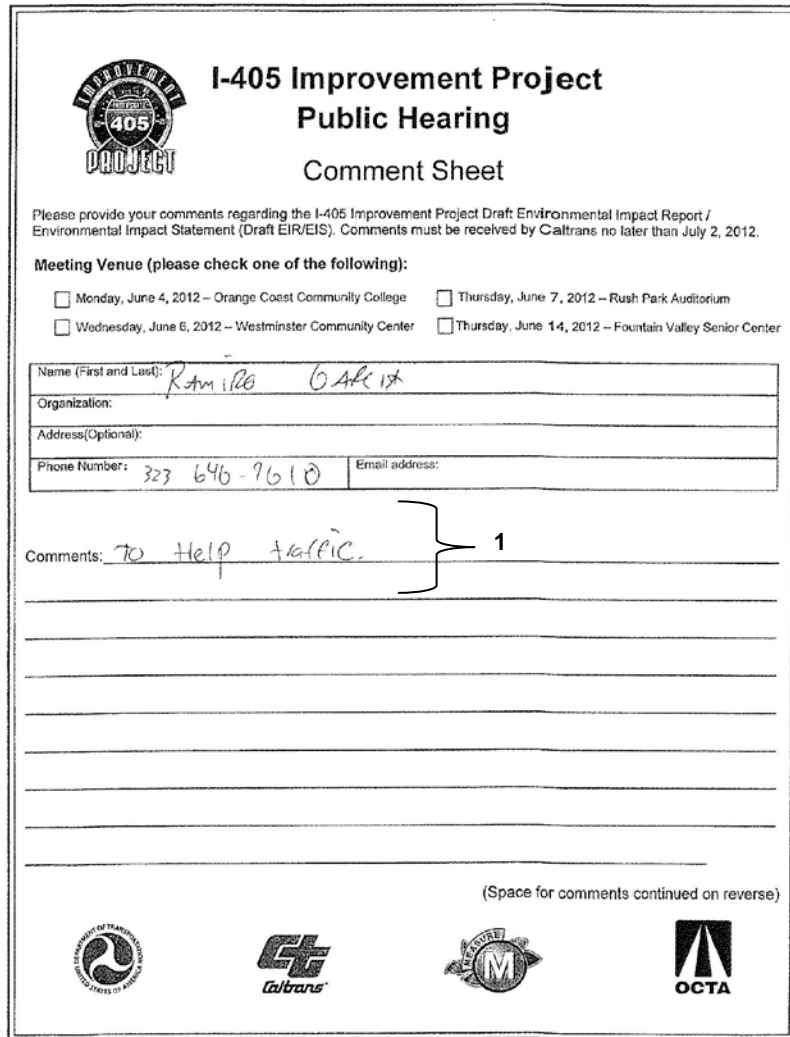 IMPROVEMENT
INTERSTATE
405
PROJECT
I-405 Improvement Project
Public Hearing
Comment Sheet
Please provide your comments regarding the I-405 Improvement Project Draft Environmental Impact Report /
Environmental Impact Statement (Draft EIR/EIS). Comments must be received by Caltrans no later than July 2, 2012.
Meeting Venue (please check one of the following):
Monday, June 4, 2012 – Orange Coast Community College
Thursday, June 7, 2012 – Rush Park Auditorium
Wednesday, June 6, 2012 – Westminster Community Center
Thursday, June 14, 2012 – Fountain Valley Senior Center
Name (First and Last): RAmiRO GARCIA
Organization:
Address(Optional):
Phone Number: 323 646-9610 Email address:
Comments: To Help traffic. 1
(Space for comments continued on reverse)
DEPARTMENT OF TRANSPORTATION
UNITED STATES OF AMERICA
Caltrans
MEASURE
M
OCTA